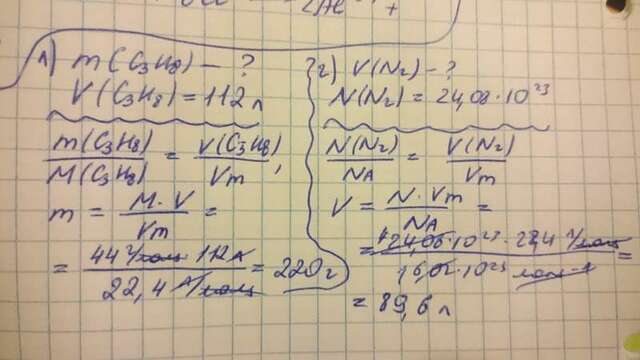 л) m(C₃H₈) – ?
V(C₃H₈) = 112 л
m(C₃H₈)/M(C₃H₈) = V(C₃H₈)/Vm;
m = M·V/Vm =
= 44 г/моль · 112 л / 22,4 л/моль = 220 г
г) V(N₂) – ?
N(N₂) = 24,08·10²³
N(N₂)/NA = V(N₂)/Vm
V = N·Vm/NA =
= 24,08·10²³ · 22,4 л/моль / 6,02·10²³ моль⁻¹ =
= 89,6 л